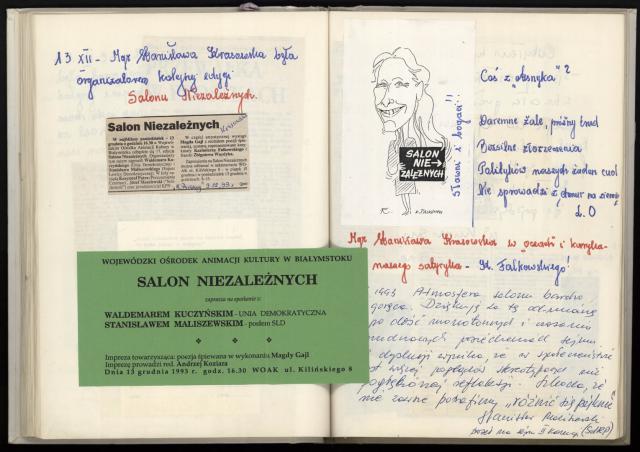 13 XII - Mgr Stanisława Krasowska była
organizatorem kolejnej edycji
Salonu Niezależnych.
Salon Niezależnych
W najbliższy poniedziałek - 13
grudnia o godzinie 16.30 w Woje-
wódzkim Ośrodku Animacji Kultury w
Białymstoku odbędzie się
Salonu Niezależnych. Organizatorzy
zaprosili Waldemara Ku-
czyńskiego (Unia Demokratyczna) i
Stanisława Maliszewskiego (Sojusz
Lewicy Demokratycznej).
W części artystycznej wystąpi
Magda Gajl z recitalem poezji śpie-
wanej,
Kazimierza Falkowskiego i
WOJEWÓDZKI OŚRODEK ANIMACJI KULTURY W BIAŁYMSTOKU
SALON NIEZALEŻNYCH
zaprasza na spotkanie z:
WALDEMAREM KUCZYŃSKIM - UNIA DEMOKRATYCZNA
STANISŁAWEM MALISZEWSKIM - posłem SLD
Impreza towarzysząca: poezja śpiewana w wykonaniu Magdy Gajl
Imprezę prowadzi red. Andrzej Koziara
Dnia 13 grudnia 1993 r. godz. 16.30 WOAK ul. Kilińskiego 8
SALON
NIE→
ZALEŻNYCH
K. FALKOWSKI
Sława i bogaci!!
Coś z "Asnyka"?
Daremne żale, próżny trud
Bezsilne złorzeczenia
Polityków naszych żaden cud
Nie sprowadzi z chmur na ziemię
Ł.O
Mgr Stanisława Krasowska w "oczach" i karyka-
naszego satyryka - K. Falkowskiego!
1993 Atmosfera salonu bardzo
gorąca. Dziękuję za tę odmianę
po dość monotonnych i czasami
nudnawych posiedzeniach sejmu
z dyskusji wynika, że w społeczeństwie
jest więcej poglądów stereotypowych niż
pogłębionej refleksji. Szkoda, że
nie zawsze potrafimy "różnić się pięknie"
Stanisław Maliszewski
poseł na sejm II kadencji (SdRP)